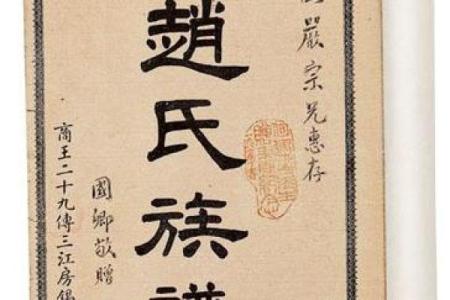 嚴宗兄惠存
趙氏族譜
國卿敬贈
商王二十九傳三江房錫